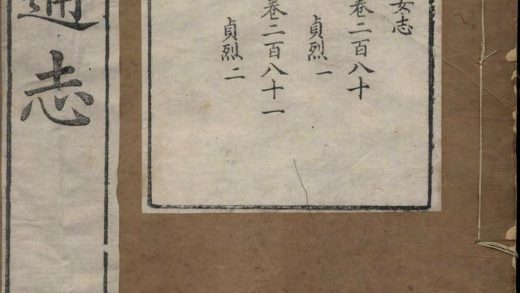 女志
卷二百八十
貞烈一
卷二百八十一
貞烈二
通志